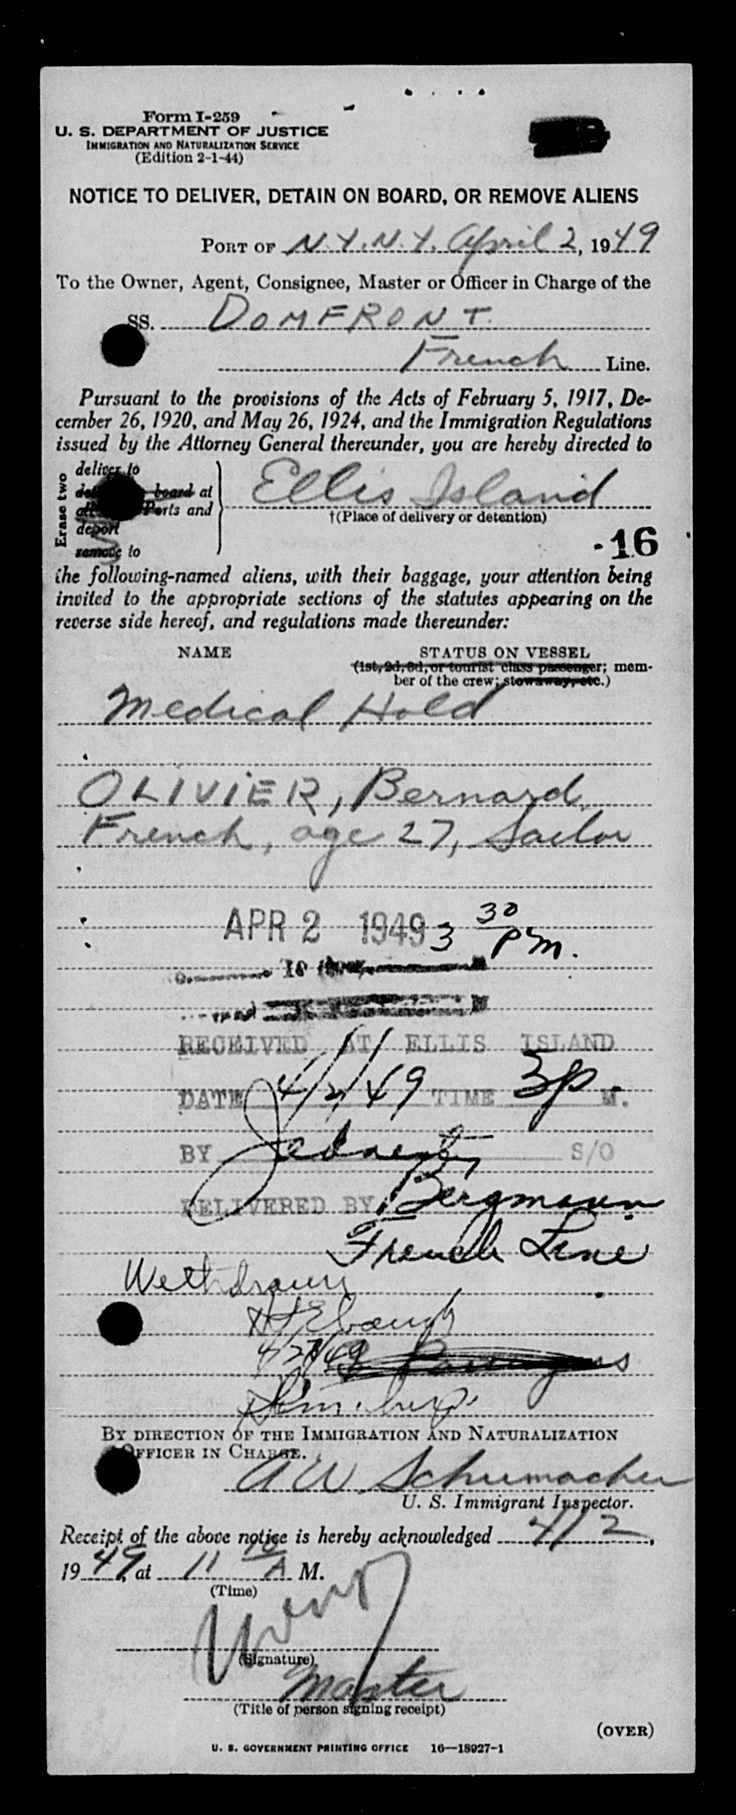 Form I-259
U. S. DEPARTMENT OF JUSTICE
IMMIGRATION AND NATURALIZATION SERVICE
(Edition 2-1-44)
NOTICE TO DELIVER, DETAIN ON BOARD, OR REMOVE ALIENS
PORT OF N.Y.N.Y. April 2, 1949
To the Owner, Agent, Consignee, Master or Officer in Charge of the
SS. DOMFRONT
French Line.
Pursuant to the provisions of the Acts of February 5, 1917, De-
cember 26, 1920, and May 26, 1924, and the Immigration Regulations
issued by the Attorney General thereunder, you are hereby directed to
Erase two
deliver to
board at
Ports and
deport
remove to
Ellis Island
†(Place of delivery or detention)
-16
the following-named aliens, with their baggage, your attention being
invited to the appropriate sections of the statutes appearing on the
reverse side hereof, and regulations made thereunder:
NAME STATUS ON VESSEL
(1st, 2d, 3d, or tourist class passenger; mem-
ber of the crew; stowaway, etc.)
Medical Hold
OLIVIER, Bernard
French, age 27, Sailor
APR 2 1949 3 30 PM.
RECEIVED AT ELLIS ISLAND
DATE 4/2/49 TIME 3p M.
BY S/O
DELIVERED BY Bergmann
French Line
Withdrawn
4/27/49
BY DIRECTION OF THE IMMIGRATION AND NATURALIZATION
OFFICER IN CHARGE.
A W Schumacher
U. S. Immigrant Inspector.
Receipt of the above notice is hereby acknowledged 4/2,
1949, at 11 A M.
(Time)
(Signature)
Master
(Title of person signing receipt)
(OVER)
U. S. GOVERNMENT PRINTING OFFICE 16—18927-1